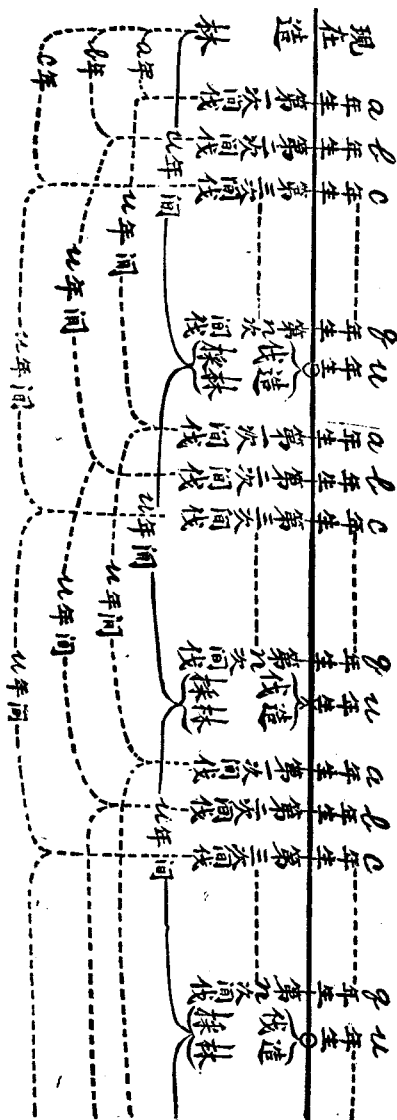 現在造林
a年生第一次间伐
b年生第二次间伐
c年生第三次间伐
q年生第n次间伐
u年生
伐採
造林
a年生第一次间伐
b年生第二次间伐
c年生第三次间伐
q年生第n次间伐
u年生
伐採
造林
a年生第一次间伐
b年生第二次间伐
c年生第三次间伐
q年生第n次间伐
u年生
伐採
造林
u年间
u年间
u年间
a年
u年间
u年间
b年
u年间
u年间
c年
u年间
u年间